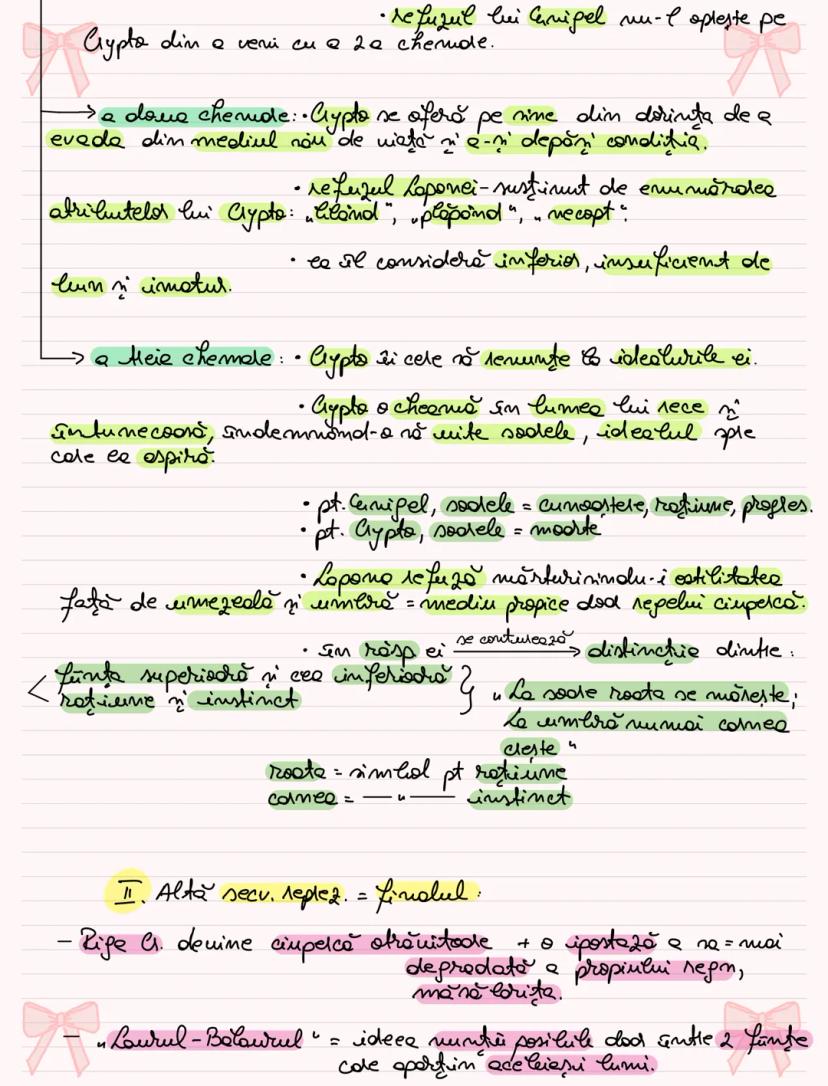 • refuzul lui Enigel nu-l oprește pe
Crypto din a veni cu a 2a chemare.
→ a doua chemare: • Crypto se oferă pe sine din dorința de a
evada din mediul său de viață și a-și depăși condiția.
• refuzul Laponei - susținut de enumărarea
atributelor lui Crypto: „blând", „plăpând", „necopt".
• ea îl consideră inferior, insuficient de
bun și imatur.
→ a treia chemare: • Crypto îi cere să renunțe la idealurile ei.
• Crypto o cheamă în lumea lui rece și
întunecoasă, îndemnând-o să uite soarele, idealul spre
care ea aspiră.
• pt. Enigel, soarele = cunoaștere, rațiune, progres.
• pt. Crypto, soarele = moarte
• Lapona refuză mărturisindu-i ostilitatea
față de umezeală și umbră = mediu propice doar regelui ciupercă.
• în răsp ei se conturează → distincție dintre:
< ființa superioară și cea inferioară
rațiune și instinct } „La soare roata se mărește;
La umbră numai carnea
crește"
roata = simbol pt rațiune
carnea = — " — instinct
II. Altă secv. reprez. = finalul:
- Rige Cr. devine ciupercă otrăvitoare + o ipostază a sa = mai
degradată a propriului regn,
măsălarița.
- „Laurul-Balaurul" = ideea nunții posibile doar între 2 ființe
care aparțin aceleiași lumi.